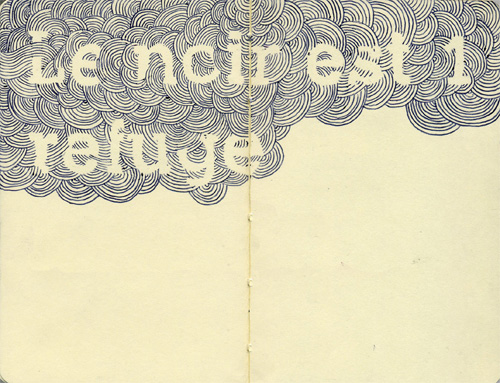 Le noir est 1
refuge